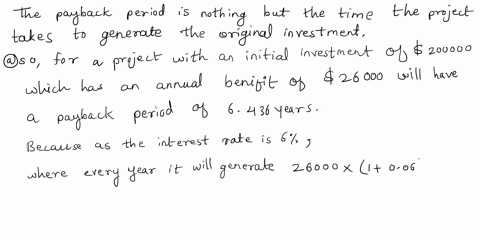 The payback period is nothing but the time the project
takes to generate the original investment.
@ so, for a project with an initial investment of $ 200000
which has an annual benifit of $ 26000 will have
a payback period of 6.436 years.
Because as the interest rate is 6% ,
where every year it will generate 26000 × (1+ 0.06